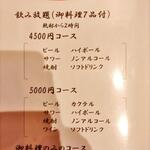 飲み放題(御料理7品付)
乾杯から2時間
4500円コース
ビール ハイボール
サワー ノンアルコール
焼酎 ソフトドリンク
5000円コース
ビール カクテル
サワー ハイボール
焼酎 ノンアルコール
ワイン ソフトドリンク
御料理のみのコース